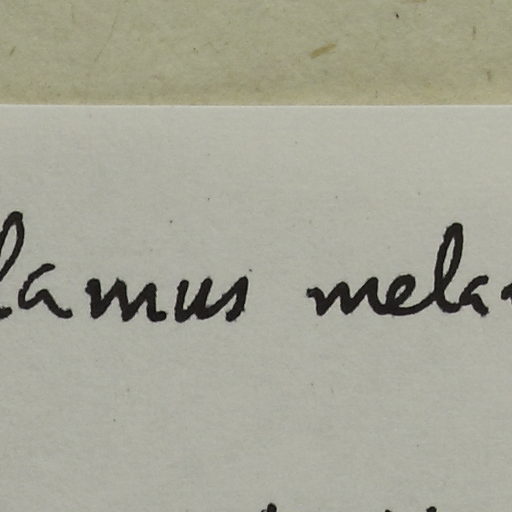 lamus mela